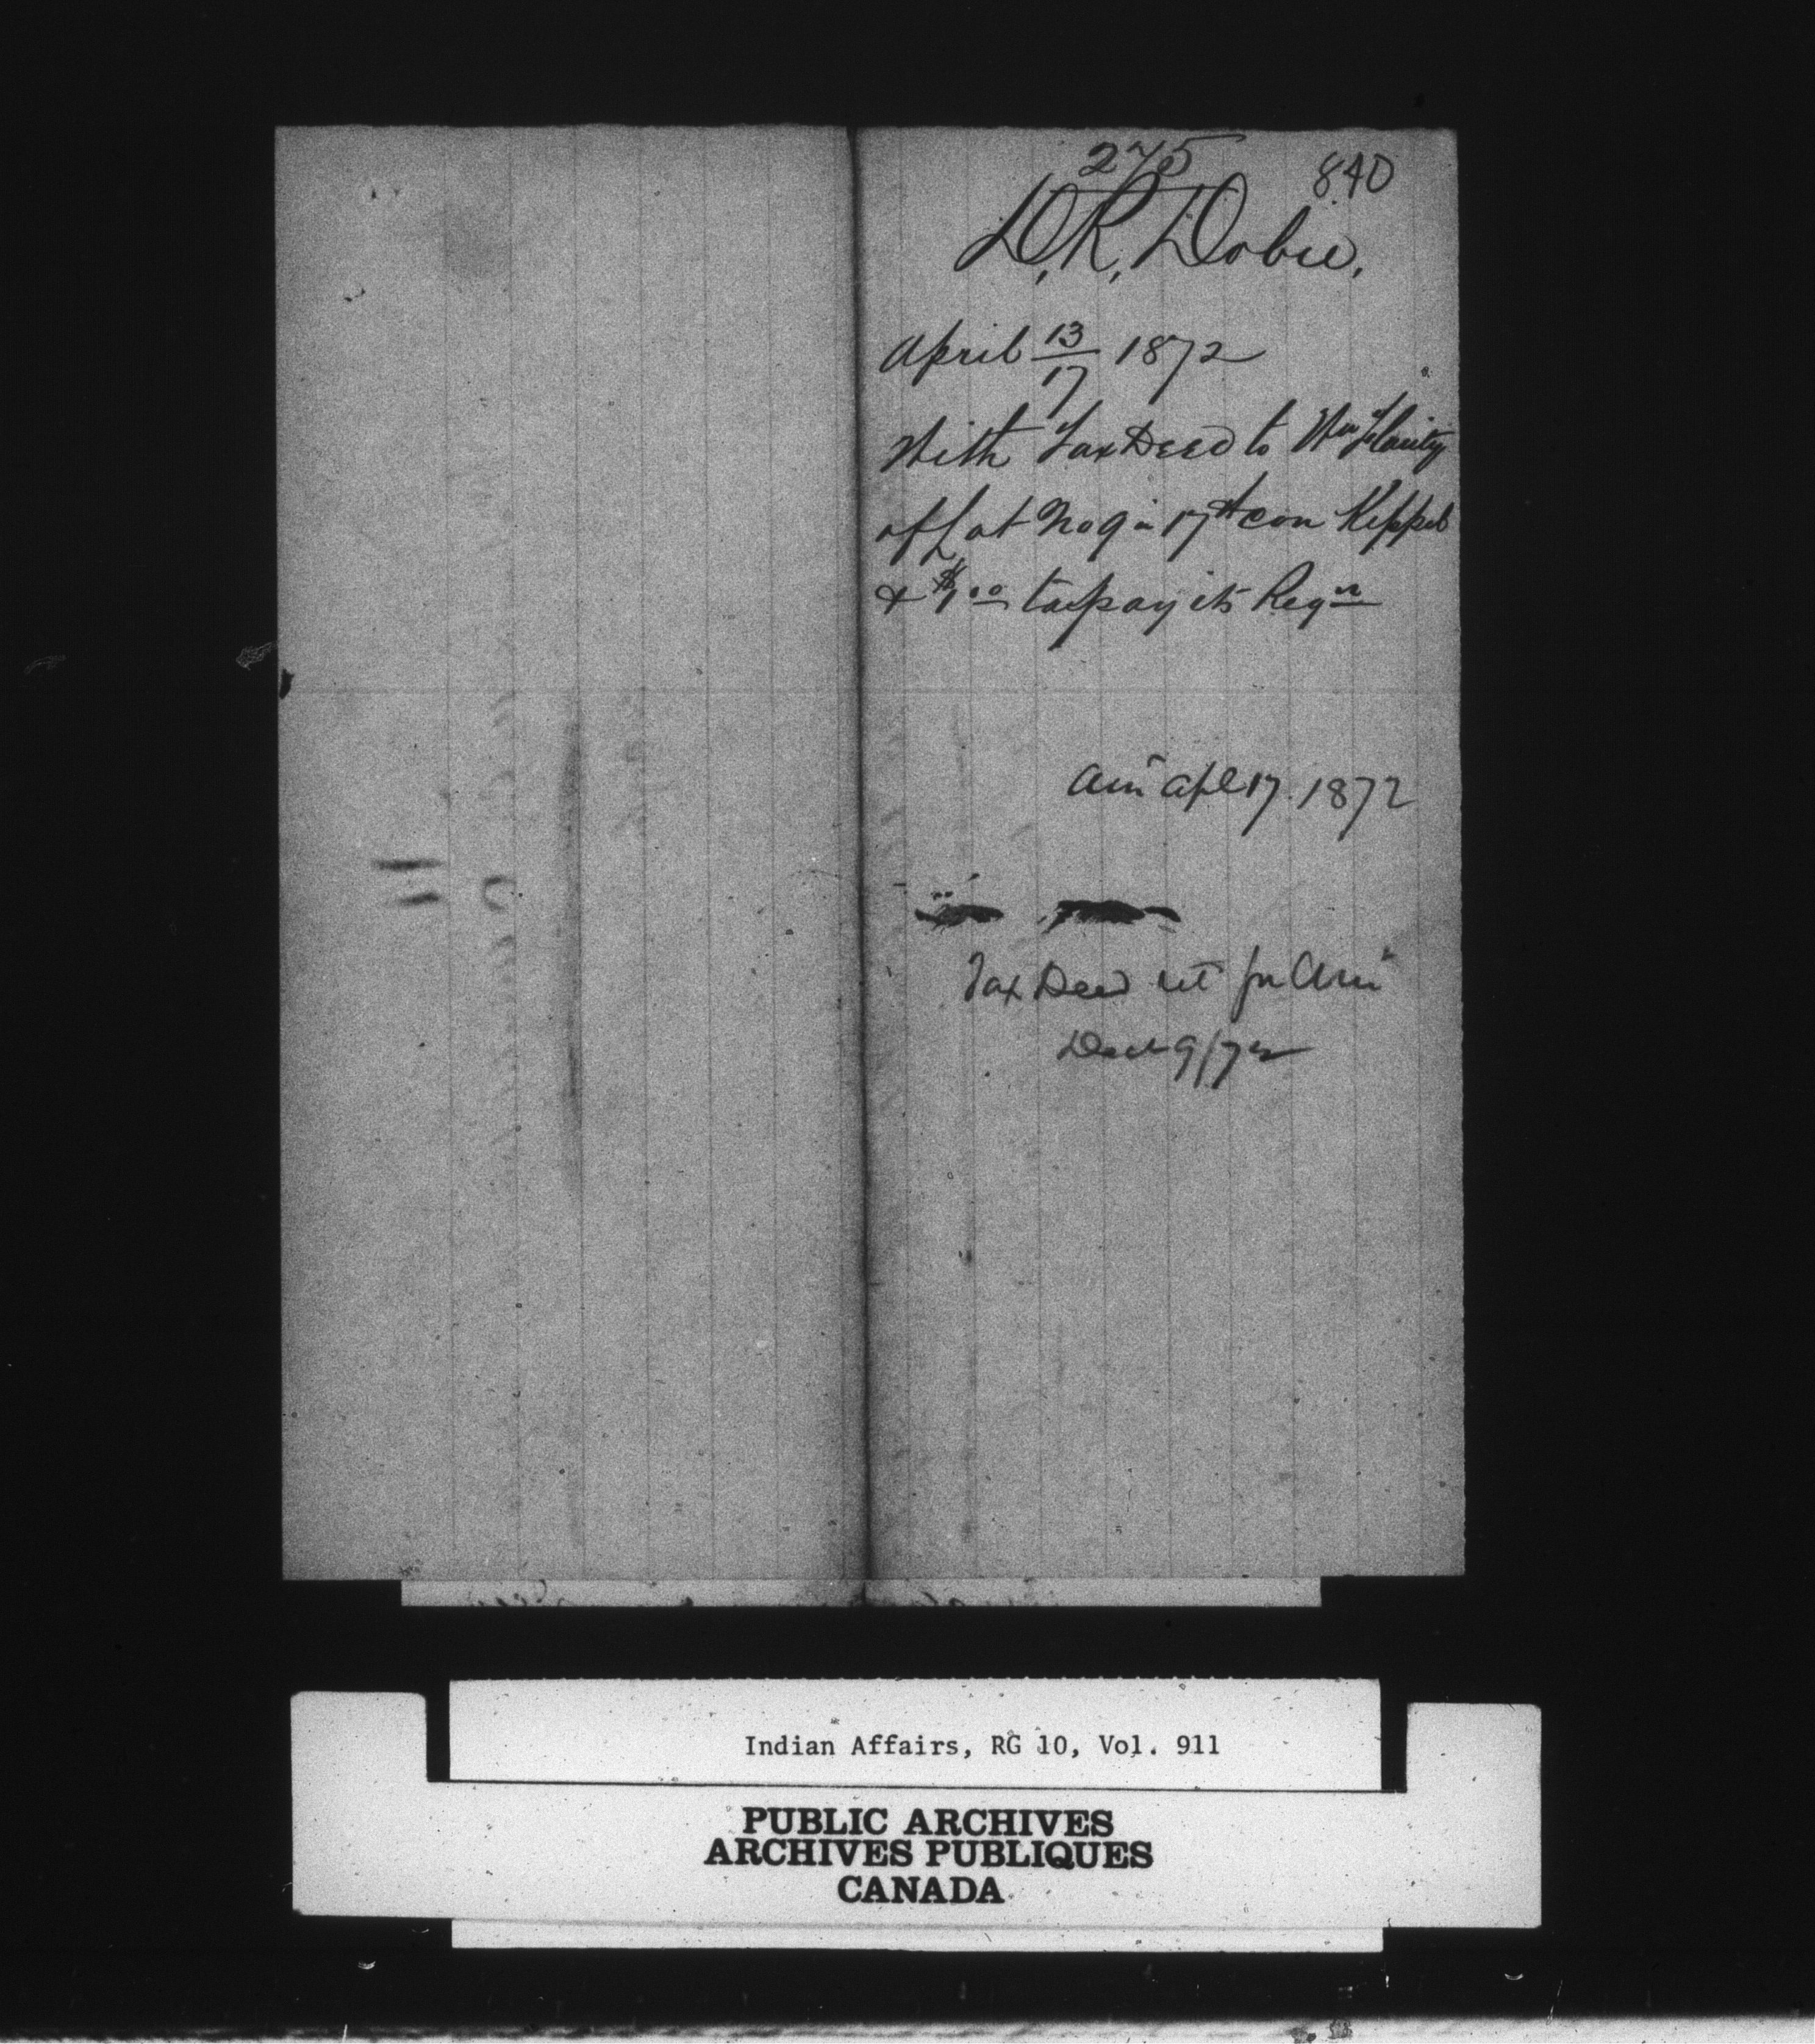 275
840
D. R. Dobie.
April 13/17 1872
With Tax Deed to Wm
of Lot No 9 in 17th con Keppel
& $1.00 to pay its Regn
Apl 17. 1872
Tax Deed ret for
Dec 9/72
Indian Affairs, RG 10, Vol. 911
PUBLIC ARCHIVES
ARCHIVES PUBLIQUES
CANADA